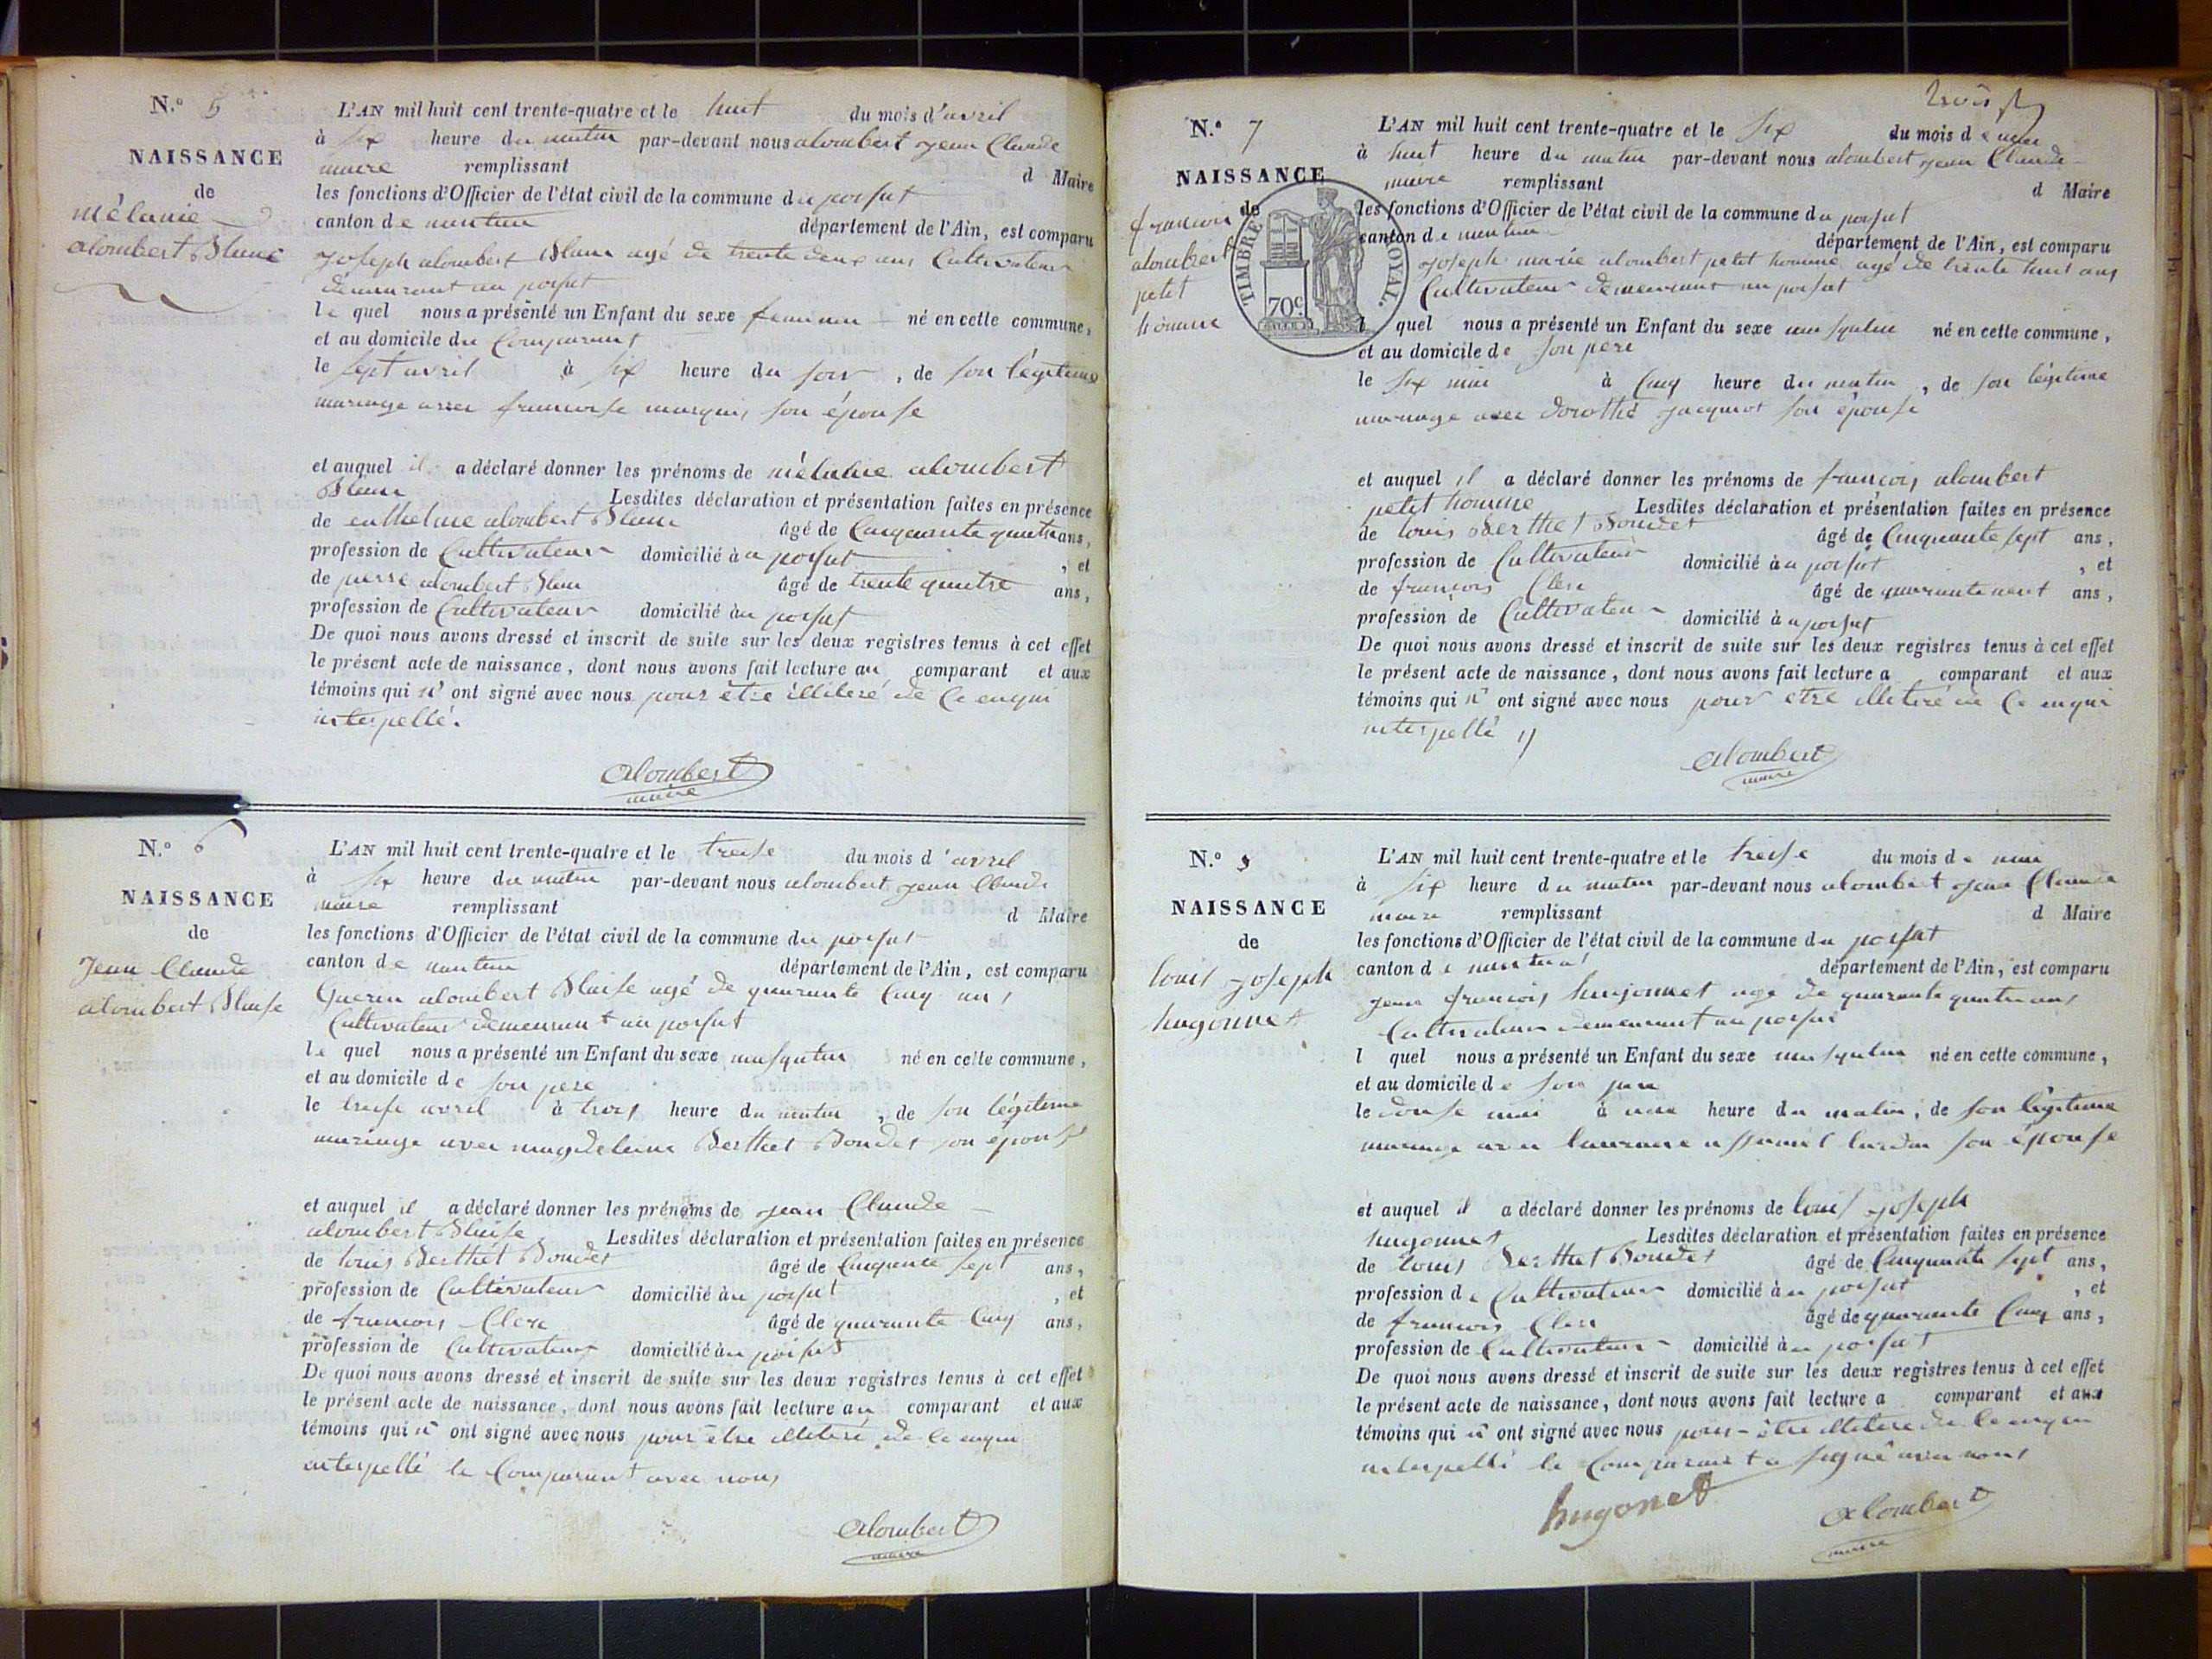 N.° 5
NAISSANCE
de
mélanie
alombert Blanc
L'AN mil huit cent trente-quatre et le huit du mois d'avril
à six heure du matin par-devant nous alombert jean Claude
maire remplissant d Maire
les fonctions d'Officier de l'état civil de la commune du poisat
canton de nantua département de l'Ain, est comparu
joseph alombert Blanc agé de trente deux ans Cultivateur
demeurant au poisat
le quel nous a présenté un Enfant du sexe feminin né en cette commune,
et au domicile du Comparant
le sept avril à six heure du soir, de son légitime
mariage avec francoise marquis son épouse
et auquel il a déclaré donner les prénoms de mélanie alombert
Blanc Lesdites déclaration et présentation faites en présence
de enthelme alombert Blanc âgé de Cinquante quatre ans,
profession de Cultivateur domicilié au poisat, et
de pierre alombert Blanc âgé de trente quatre ans,
profession de Cultivateur domicilié au poisat
De quoi nous avons dressé et inscrit de suite sur les deux registres tenus à cet effet
le présent acte de naissance, dont nous avons fait lecture au comparant et aux
témoins qui n'ont signé avec nous pour être illiteré de Ce enqui
interpellé.
alombert
maire
N.° 6
NAISSANCE
de
Jean Claude
alombert Blaise
L'AN mil huit cent trente-quatre et le treise du mois d'avril
à six heure du matin par-devant nous alombert jean Claude
maire remplissant d Maire
les fonctions d'Officier de l'état civil de la commune du poisat
canton de nantua département de l'Ain, est comparu
Guerin alombert Blaise agé de quarante Cinq ans
Cultivateur demeurant au poisat
le quel nous a présenté un Enfant du sexe masqulin né en cette commune,
et au domicile de son pere
le treise avril à trois heure du matin, de son légitime
mariage avec magdelaine Berthet Bondet son épouse
et auquel il a déclaré donner les prénoms de jean Claude
alombert Blaise Lesdites déclaration et présentation faites en présence
de louis Berthet Bondet âgé de Cinquente sept ans,
profession de Cultivateur domicilié au poisat, et
de francois Clerc âgé de quarante Cinq ans,
profession de Cultivateur domicilié au poisat
De quoi nous avons dressé et inscrit de suite sur les deux registres tenus à cet effet
le présent acte de naissance, dont nous avons fait lecture au comparant et aux
témoins qui n'ont signé avec nous pour etre illiteré de Ce enqui
interpellé le Comparant avec nous
alombert
maire
trois
N.° 7
NAISSANCE
de
francois
alombert
petit
homme
TIMBRE ROYAL.
70c
L'AN mil huit cent trente-quatre et le six du mois de mai
à huit heure du matin par-devant nous alombert jean Claude
maire remplissant d Maire
les fonctions d'Officier de l'état civil de la commune du poisat
canton de nantua département de l'Ain, est comparu
joseph marie alombert petit homme agé de trente huit ans
Cultivateur demeurant au poisat
l quel nous a présenté un Enfant du sexe masqulin né en cette commune,
et au domicile de son pere
le six mai à Cinq heure du matin, de son légitime
mariage avec Dorothé jacquiot son épouse
et auquel il a déclaré donner les prénoms de françois alombert
petit homme Lesdites déclaration et présentation faites en présence
de louis Berthet Bondet âgé de Cinquante sept ans,
profession de Cultivateur domicilié au poisat, et
de francois Clerc âgé de quarante neuf ans,
profession de Cultivateur domicilié au poisat
De quoi nous avons dressé et inscrit de suite sur les deux registres tenus à cet effet
le présent acte de naissance, dont nous avons fait lecture a comparant et aux
témoins qui n'ont signé avec nous pour etre illiteré de Ce enqui
interpellé
alombert
maire
N.°
NAISSANCE
de
louis joseph
hugonnet
L'AN mil huit cent trente-quatre et le treise du mois de mai
à six heure du matin par-devant nous alombert jean Claude
maire remplissant d Maire
les fonctions d'Officier de l'état civil de la commune du poisat
canton de nantua département de l'Ain, est comparu
jean francois hugonnet age de quarante quatre ans
Cultivateur demeurant au poisat
l quel nous a présenté un Enfant du sexe masqulin né en cette commune,
et au domicile de son pere
le douse mai à une heure du matin, de son légitime
mariage avec son épouse
et auquel il a déclaré donner les prénoms de louis joseph
hugonnet Lesdites déclaration et présentation faites en présence
de louis Berthet Bondet âgé de Cinquante sept ans,
profession de Cultivateur domicilié au poisat, et
de francois Clerc âgé de quarante Cinq ans,
profession de Cultivateur domicilié au poisat
De quoi nous avons dressé et inscrit de suite sur les deux registres tenus à cet effet
le présent acte de naissance, dont nous avons fait lecture a comparant et aux
témoins qui n'ont signé avec nous pour être illiteré de Ce enqui
interpellé le Comparant a signé avec nous
hugonet
alombert
maire